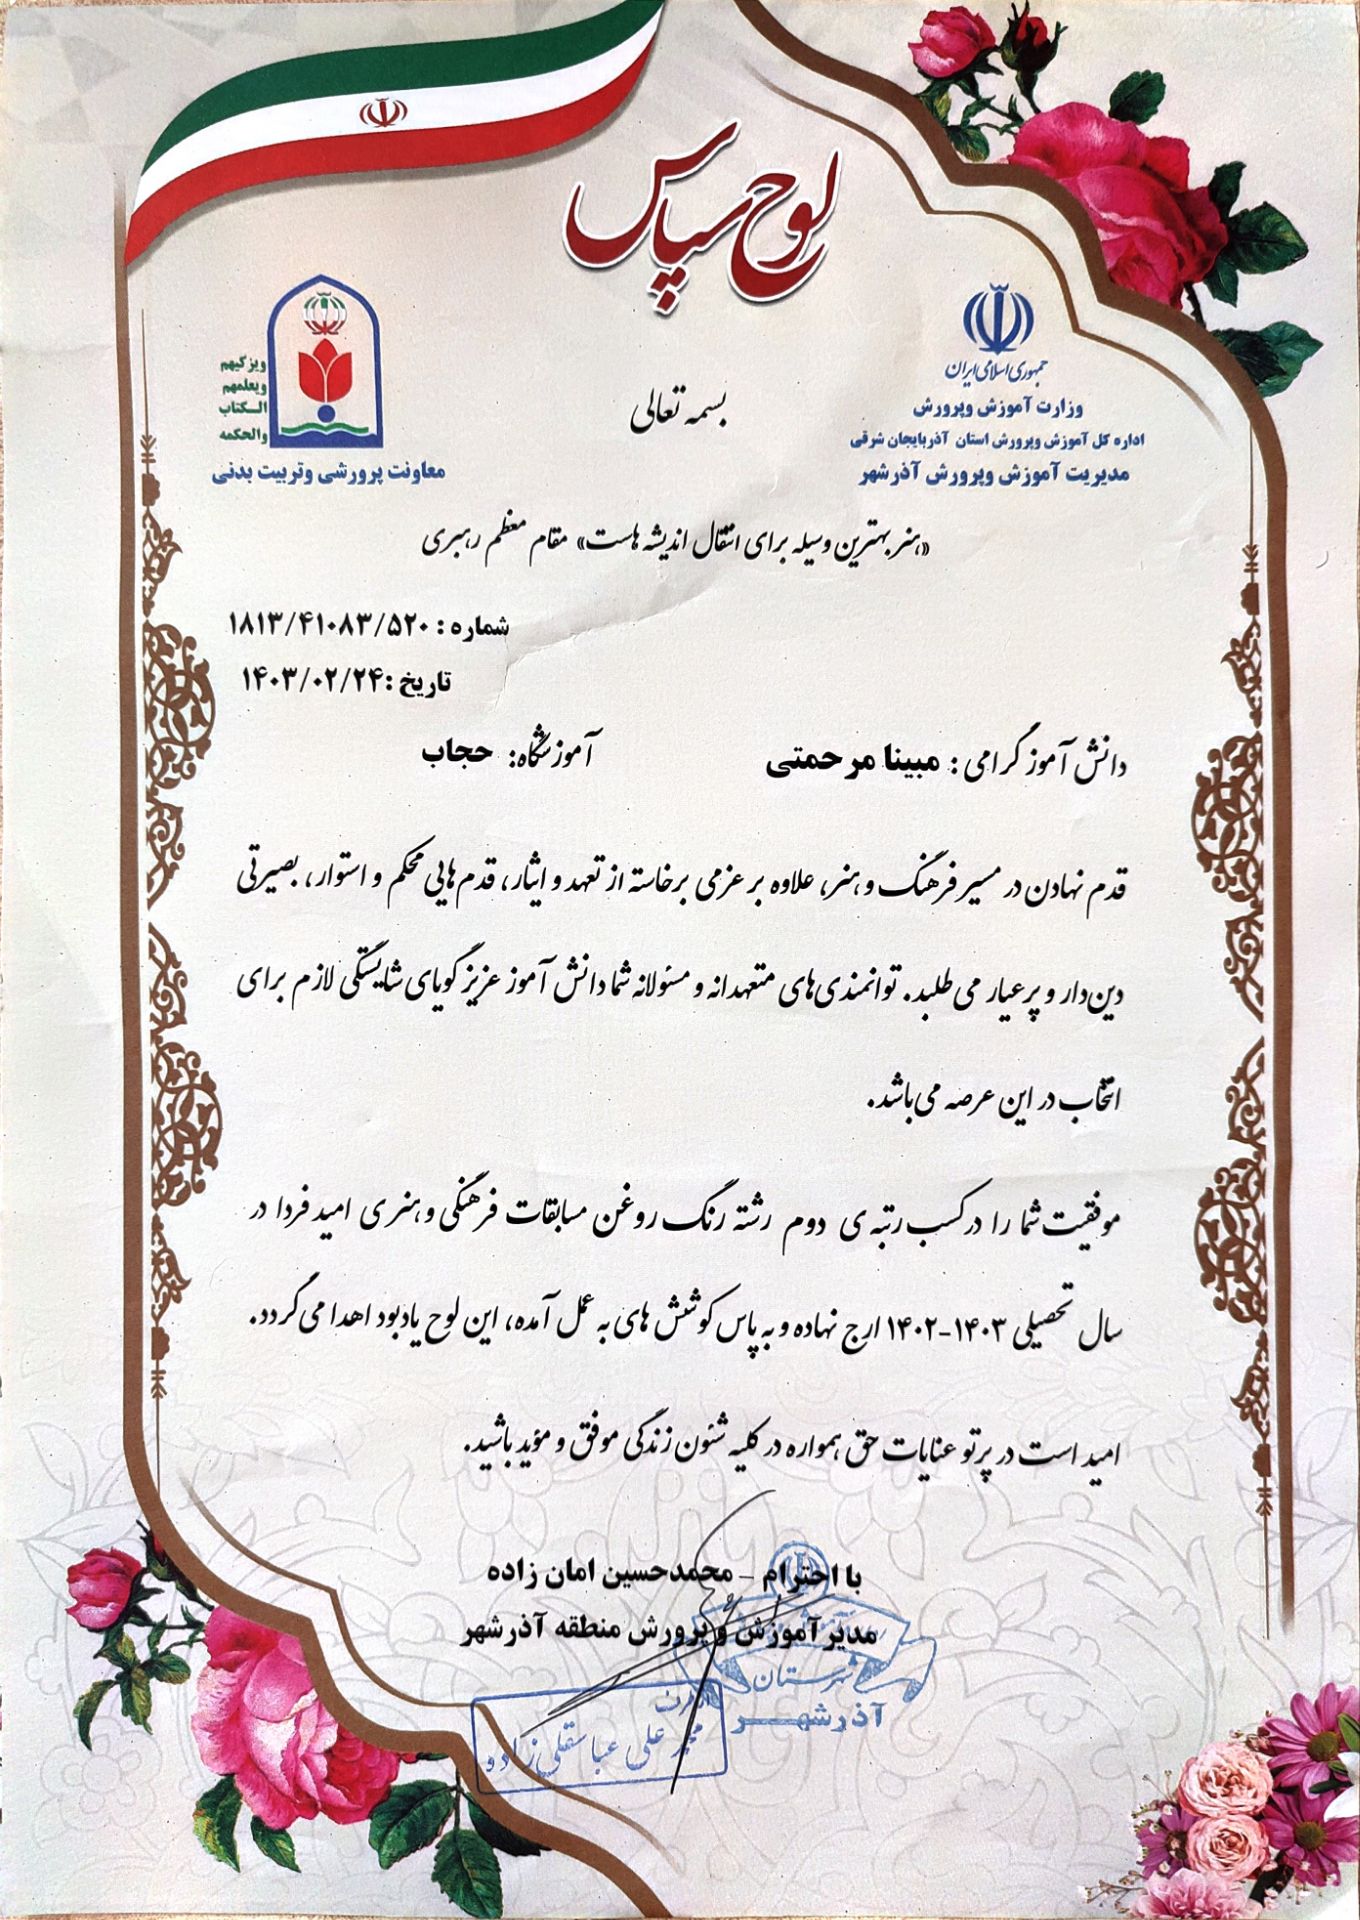 لوح سپاس
جمهوری اسلامی ایران
وزارت آموزش وپرورش
اداره کل آموزش وپرورش استان آذربایجان شرقی
مدیریت آموزش وپرورش آذرشهر
بسمه تعالی
ویزکیهم
ویعلمهم
الکتاب
والحکمه
معاونت پرورشی وتربیت بدنی
«هنر بهترین وسیله برای انتقال اندیشه هاست» مقام معظم رهبری
شماره : ۱۸۱۳/۴۱۰۸۳/۵۲۰
تاریخ : ۱۴۰۳/۰۲/۲۴
دانش آموز گرامی : مبینا مرحمتی آموزشگاه: حجاب
قدم نهادن در مسیر فرهنگ و هنر، علاوه بر عزمی برخاسته از تعهد و ایثار، قدم‌هایی محکم و استوار، بصیرتی
دین‌دار و پرعیار می طلبد. توانمندی‌های متعهدانه و مسئولانه شما دانش آموز عزیز گویای شایستگی لازم برای
انتخاب در این عرصه می‌باشد.
موفقیت شما را در کسب رتبه ی دوم رشته رنگ روغن مسابقات فرهنگی و هنری امید فردا در
سال تحصیلی ۱۴۰۳-۱۴۰۲ ارج نهاده و به پاس کوشش های به عمل آمده، این لوح یادبود اهدا می گردد.
امید است در پرتو عنایات حق همواره در کلیه شئون زندگی موفق و موید باشید.
با احترام – محمدحسین امان زاده
مدیر آموزش و پرورش منطقه آذرشهر
شهرستان
آذرشهر
علی عباسقلی زاده